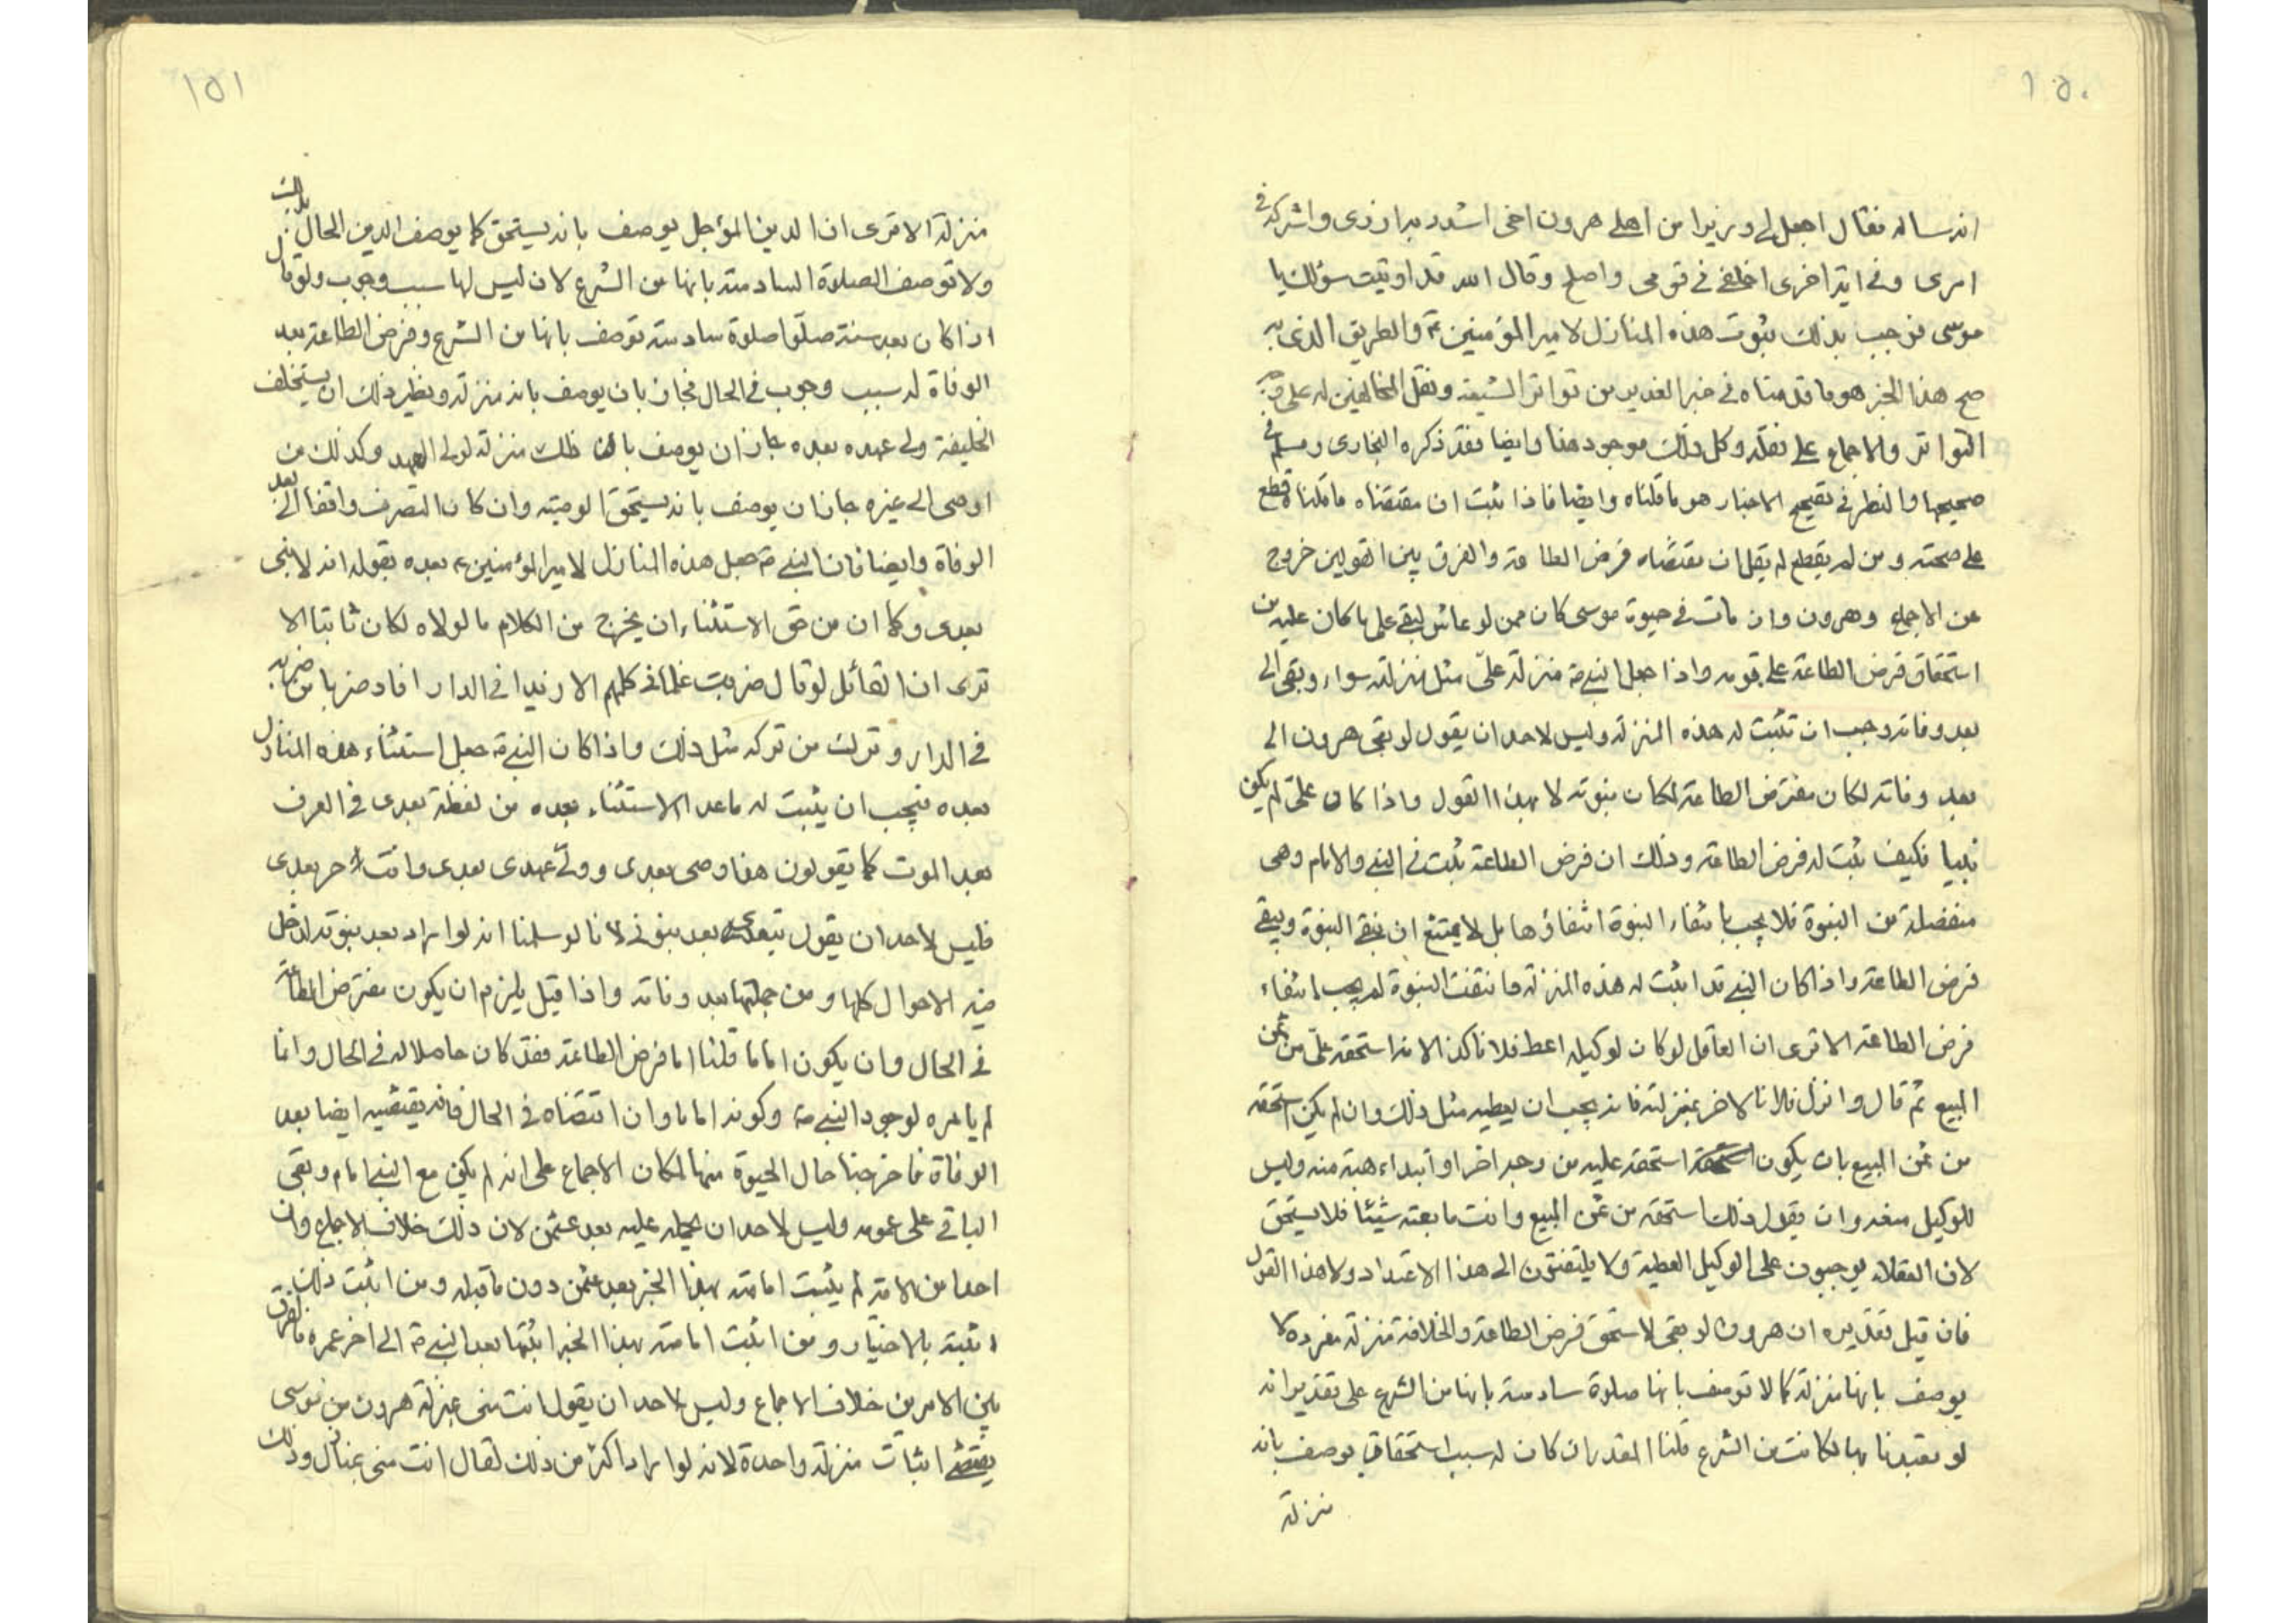 ١٥٠
انه ساله فقال اجعل لي وزيرا من اهلي هرون اخي اشدد به ازري واشركه في
امري وفي اية اخرى اخلفني في قومي واصلح وقال الله قد اوتيت سؤلك يا
موسى فوجب بذلك ثبوت هذه المنازل لامير المؤمنين ع والطريق الذي به
صح هذا الخبر هو ما قدمناه في خبر الغدير من تواتر الشيعة ونقل المخالفين له على وجه
التواتر والاجماع على نقله وكل ذلك موجود هنا وايضا فقد ذكره البخاري ومسلم في
صحيحهما والنظر في تصحيح الاخبار هو ما قلناه وايضا فاذا ثبت ان مقتضاه ما قلناه قطع
على صحته ومن لم يقطع لم يقل ان مقتضاه فرض الطاعة والفرق بين القولين خروج
عن الاجماع وهرون وان مات في حيوة موسى كان ممن لو عاش لبقى على ما كان عليه من
استحقاق فرض الطاعة على قومه واذا جعل النبي ص منزلة علي مثل منزلته سواء وبقى الى
بعد وفاته وجب ان تثبت له هذه المنزلة وليس لاحد ان يقول لو بقى هرون الى
بعد وفاته لكان مفترض الطاعة لمكان نبوته لا بهذا القول واذا كان علي لم يكن
نبيا فكيف يثبت له فرض الطاعة وذلك ان فرض الطاعة يثبت في النبي والامام وهي
منفصلة من النبوة فلا يجب بانتفاء النبوة انتفاؤها بل لا يمتنع ان ينتفي النبوة ويبقى
فرض الطاعة واذا كان النبي قد اثبت له هذه المنزلة وانتفت النبوة لم يجب انتفاء
فرض الطاعة الا ترى ان العاقل لو كان لوكيله اعط فلانا كذا لانه استحقه علي من ثمن
المبيع ثم قال وانزل فلانا لاخر بمنزلته فانه يجب ان يعطيه مثل ذلك وان لم يكن استحقه
من ثمن المبيع بان يكون استحقه عليه من وجه اخر او ابتداء هبة منه وليس
للوكيل منعه وان يقول ذلك استحقه من ثمن المبيع وانت ما بعته شيئا فلا يستحق
لان العقلاء يوجبون على الوكيل العطية ولا يلتفتون الى هذا الاعتداد ولا هذا القول
فان قيل تقديره ان هرون لو بقى لاستحق فرض الطاعة والخلافة منزلة مفردة لا
يوصف بانها منزلة كما لا توصف بانها صلوة سادسة بانها من الشرع على تقدير انه
لو تعبدنا بها لكانت من الشرع قلنا المقدر ان كان له سبب استحقاق يوصف بانه
منزلة
١٥١
منزلة الا ترى ان الدين المؤجل يوصف بانه يستحق كما يوصف الدين الحال بذلك
ولا توصف الصلوة السادسة بانها من الشرع لان ليس لها سبب وجوب ولو قال
اذا كان بعد سنة صلوا صلوة سادسة توصف بانها من الشرع وفرض الطاعة بعد
الوفاة له سبب وجوب في الحال فجاز بان يوصف بانه منزلة ونظير ذلك ان يستخلف
الخليفة ولي عهده بعده جاز ان يوصف بان ذلك منزلة لولي العهد وكذلك من
اوصى الى غيره جاز ان يوصف بانه يستحق الوصية وان كان التصرف واقفا الى بعد
الوفاة وايضا فان النبي ص جعل هذه المنازل لامير المؤمنين ع بعده بقوله انه لا نبي
بعدي وكما ان من حق الاستثناء ان يخرج من الكلام ما لولاه لكان ثابتا الا
ترى ان القائل لو قال ضربت غلماني كلهم الا زيدا في الدار افاد ضربا من ضربه
في الدار وترك من تركه مثل ذلك واذا كان النبي ص جعل استثناء هذه المنازل
بعده فيجب ان يثبت له ما عدا الاستثناء بعده من لفظة بعدي في العرف
بعد الموت كما يقولون هذا وصي بعدي وولي عهدي بعدي وانت حر بعدي
فليس لاحد ان يقول بعدي بعد نبوتي لانا لو سلمنا انه لو اراد بعد نبوته لدخل
فيه الاحوال كلها ومن جملتها بعد وفاته واذا قيل يلزم ان يكون مفترض الطاعة
في الحال وان يكون اماما قلنا اما فرض الطاعة فقد كان حاصلا له في الحال وانما
لم يامره لوجود النبي ص وكونه اماما وان اقتضاه في الحال فانه يقتضيه ايضا بعد
الوفاة فاخرجنا حال الحيوة منها لمكان الاجماع على انه لم يكن مع النبي امام وبقى
الباقي على عمومه وليس لاحد ان يحمله عليه بعد عثمن لان ذلك خلاف الاجماع وان
احدا من الامة لم يثبت امامته بهذا الخبر بعد عثمن دون ما قبله ومن اثبت ذلك
اثبته بالاختيار ومن اثبت امامته بهذا الخبر اثبتها بعد النبي ص الى اخر عمره فالفرق
بين الامرين خلاف الاجماع وليس لاحد ان يقول انت مني بمنزلة هرون من موسى
يقتضي اثبات منزلة واحدة لانه لو اراد اكثر من ذلك لقال انت مني بمنازل وذلك